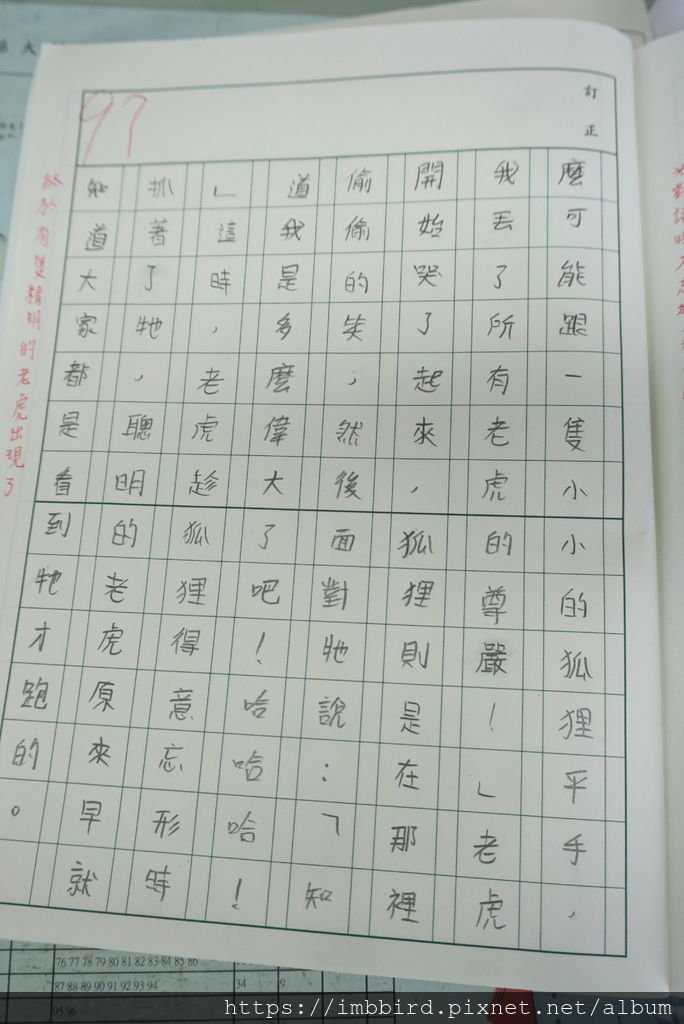 訂正
97
麼可能跟一隻小小的狐狸平手，
我丟了所有老虎的尊嚴！」老虎
開始哭了起來，狐狸則是在那裡
偷偷的笑，然後面對牠說：「知
道我是多麼偉大了吧！哈哈哈！
」這時，老虎趁狐狸得意忘形時
抓著了牠，聰明的老虎原來早就
知道大家都是看到牠才跑的。
終於有隻精明的老虎出現了
76 77 78 79 80 81 82 83 84 85 86
87 88 89 90 91 92 93 94
34
95 96
https://imbbird.pixnet.net/album